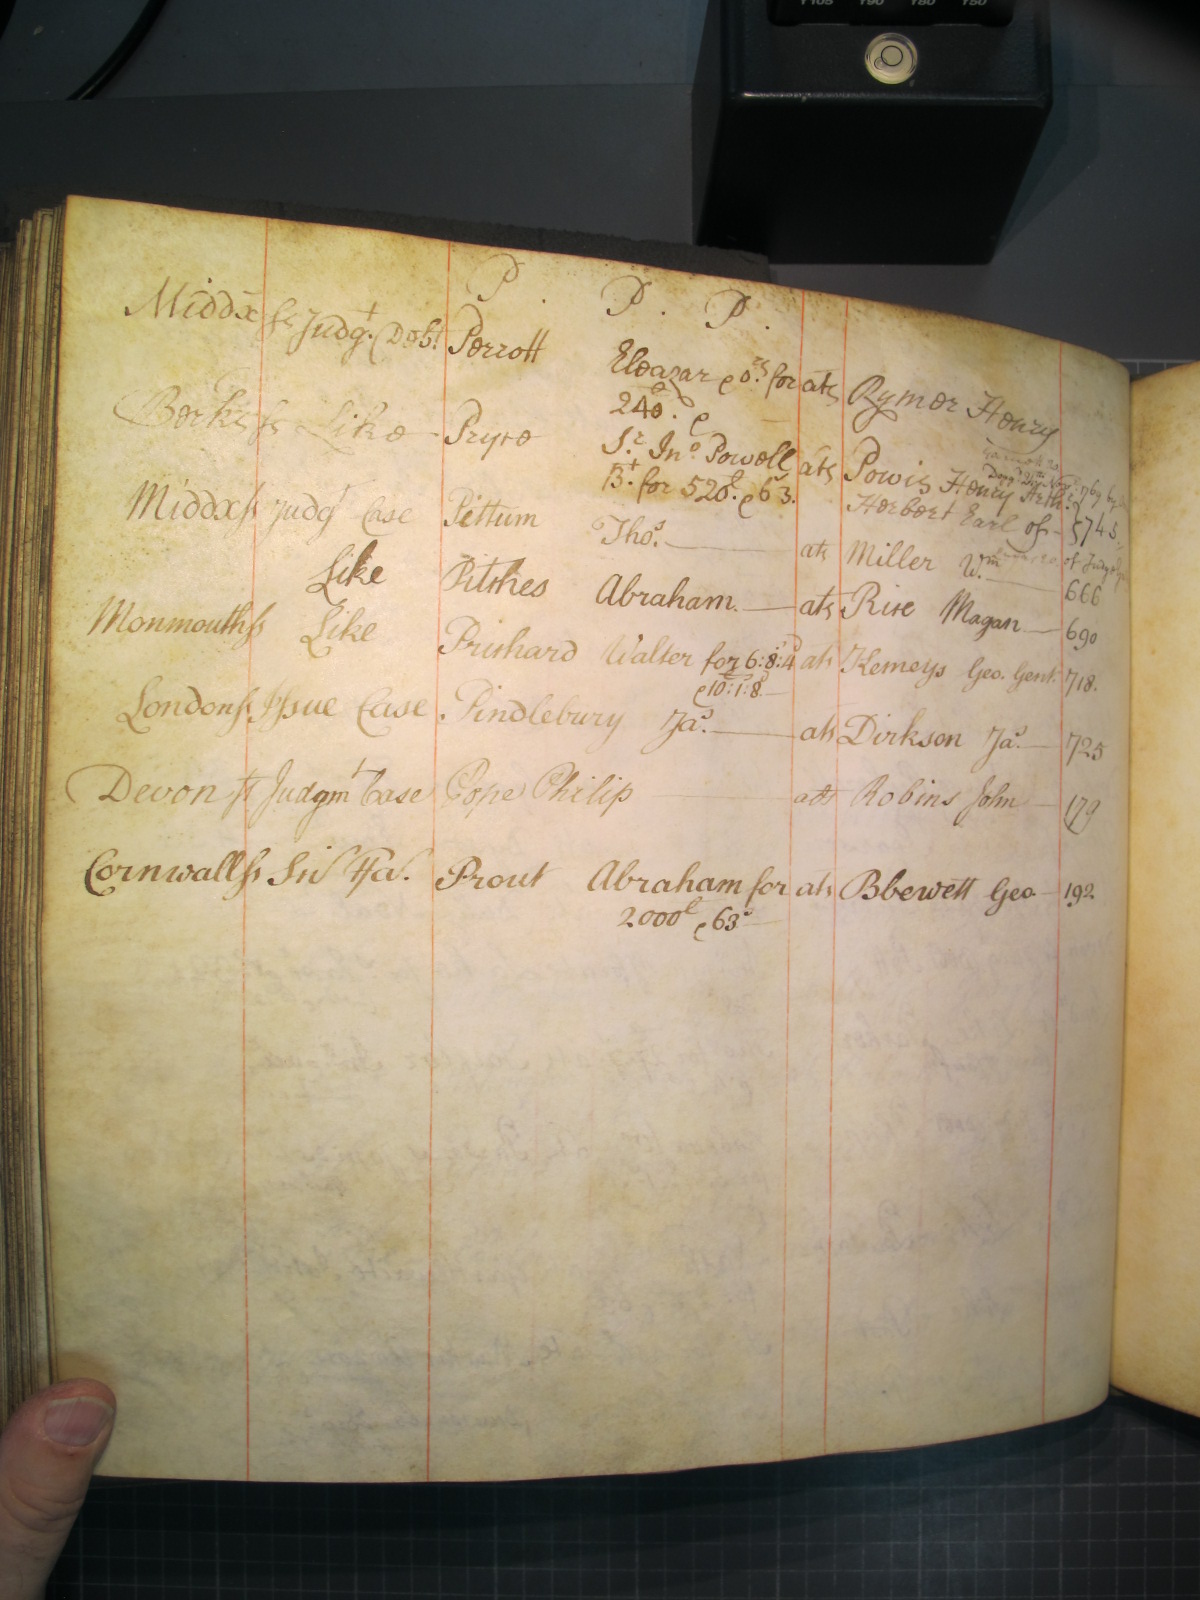 P. P. P.
Middx ss Judgt. (Debt. Perrott Eleazar & ors. for ats Rymer Henry
240. &
Berks ss Like Pryse Sr. Jno. Powell ats Powis Henry Arth.
Bt. for 520l. & 63s. Herbert Earl of 574
Middx ss Judgt Case Pittum Thos. ats Miller Wm. 666
Like Pitches Abraham. ats Rice Magan 690
Monmouth ss Like Prichard Walter for 6:8:4 ats Kemeys Geo. Gent. 718.
& 10:1:8
London ss Issue Case Pindlebury Jas. ats Dirkson Jas. 725
Devon ss Judgmt Case Pope Philip ats Robins John 179
Cornwall ss Sci Fa. Prout Abraham for ats Bbewett Geo 192
2000l & 63s